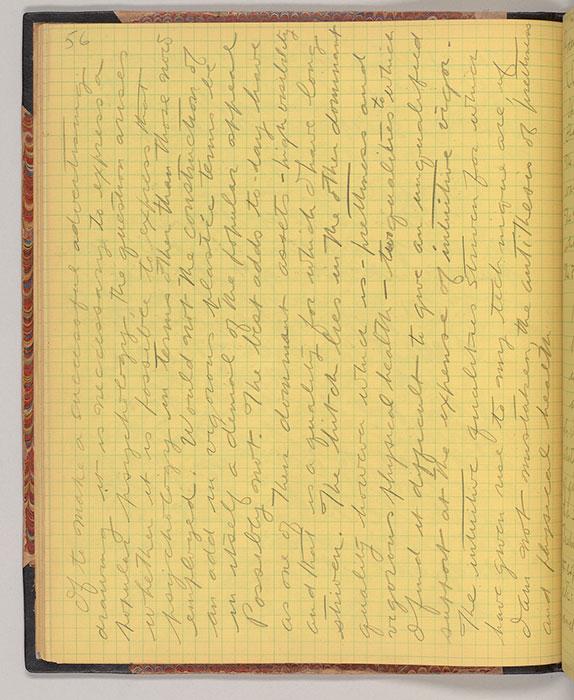 If to make a successful advertising
drawing it is necessary to express a
popular psychology, the question arises
whether it is possible to express that
psychology in terms other than those now
employed. Would not the construction of
an add in vigorous plastic terms be
in itself a denial of the popular appeal
Possibly not. The best adds to day have
as one of their dominant assets - high visibility
and that is a quality for which I have long
striven. The hitch lies in the other dominant
quality however which is - prettiness and
vigorous physical health - two qualities to which
I find it difficult to give an unqualified
support at the expense of intuitive vigor.
The intuitive qualities striven for which
have given rise to my technique are if
I am not mistaken the antithesis of prettiness
and physical health